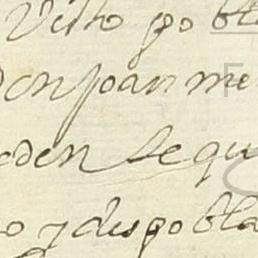 Visto pobla
Don Joan me
oden Se qu
o y despobla